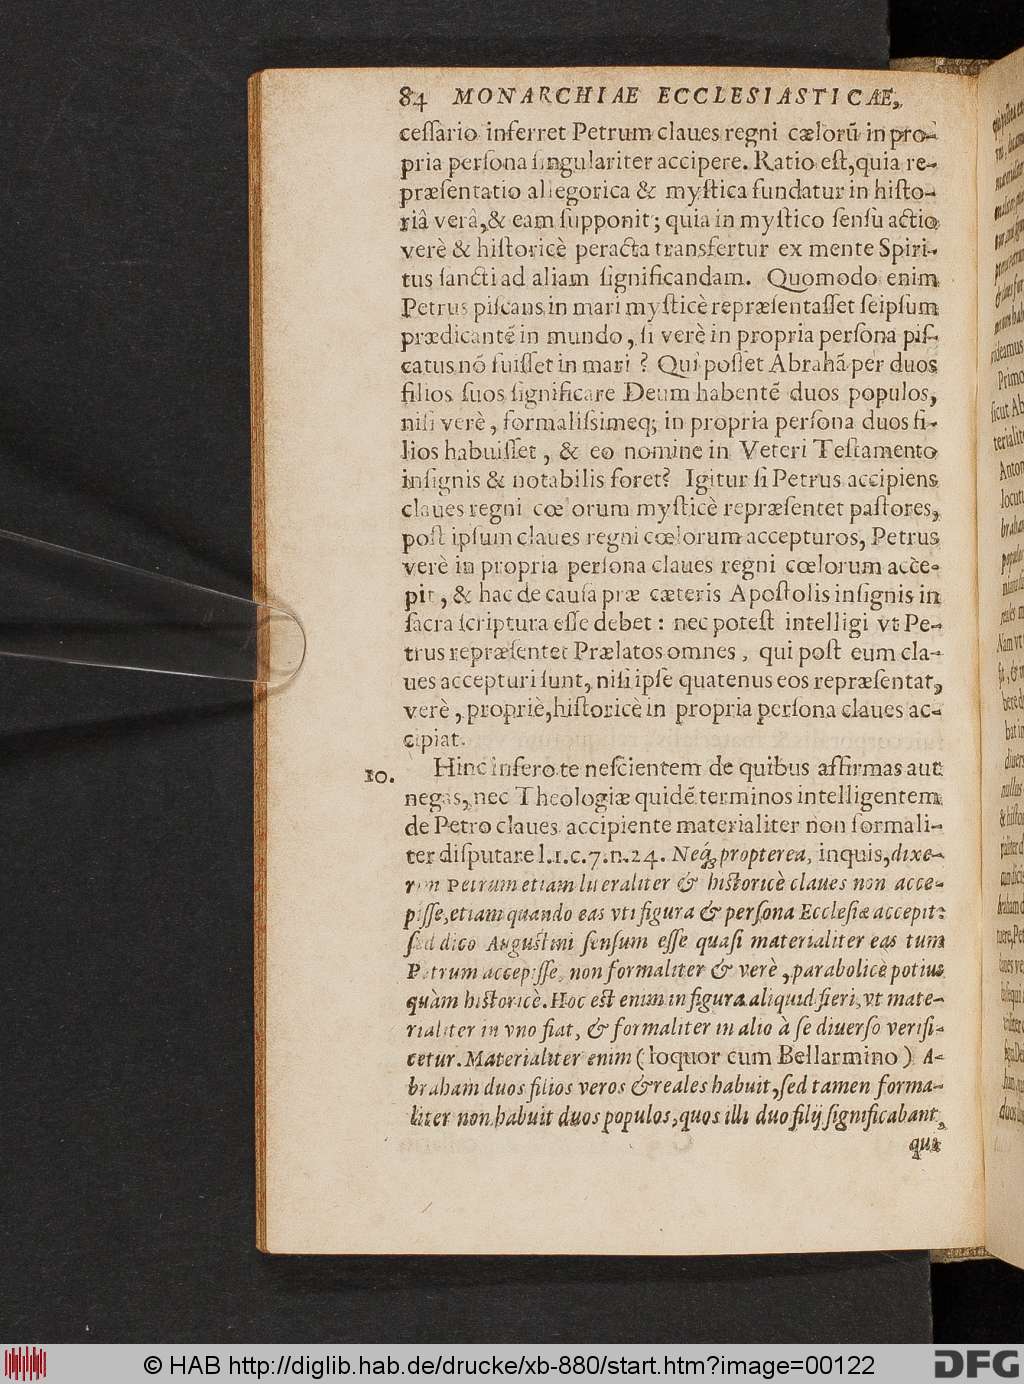 84 MONARCHIAE ECCLESIASTICAE,
ceſſario inferret Petrum claues regni cælorũ in pro-
pria perſona ſingulariter accipere. Ratio eſt, quia re-
præſentatio allegorica & myſtica fundatur in hiſto-
riâ verâ, & eam ſupponit; quia in myſtico ſenſu actio
verè & hiſtoricè peracta transfertur ex mente Spiri-
tus ſancti ad aliam ſignificandam. Quomodo enim
Petrus piſcans in mari myſticè repræſentaſſet ſeipſum
prædicantẽ in mundo, ſi verè in propria perſona piſ-
catus nõ fuiſſet in mari? Qui poſſet Abrahã per duos
filios ſuos ſignificare Deum habentẽ duos populos,
niſi verè, formaliſsimeq; in propria perſona duos fi-
lios habuiſſet, & eo nomine in Veteri Teſtamento
inſignis & notabilis foret? Igitur ſi Petrus accipiens
claues regni cœlorum myſticè repræſentet paſtores,
poſt ipſum claues regni cœlorum accepturos, Petrus
verè in propria perſona claues regni cœlorum accè-
pit, & hac de cauſa præ cæteris Apoſtolis inſignis in
ſacra ſcriptura eſſe debet: nec poteſt intelligi vt Pe-
trus repræſentet Prælatos omnes, qui poſt eum cla-
ues accepturi ſunt, niſi ipſe quatenus eos repræſentat,
verè, propriè, hiſtoricè in propria perſona claues ac-
cipiat.
10. Hinc infero te neſcientem de quibus affirmas aut
negas, nec Theologiæ quidẽ terminos intelligentem
de Petro claues accipiente materialiter non formali-
ter diſputare l.1.c.7.n.24. Neq; propterea, inquis, dixe-
rim Petrum etiam literaliter & hiſtoricè claues non acce-
piſſe, etiam quando eas vti figura & perſona Eccleſiæ accepit:
ſed dico Auguſtini ſenſum eſſe quaſi materialiter eas tum
Petrum accepiſſe, non formaliter & verè, parabolicè potius
quàm hiſtoricè. Hoc eſt enim in figura aliquid fieri, vt mate-
rialiter in vno fiat, & formaliter in alio à ſe diuerſo verifi-
cetur. Materialiter enim (loquor cum Bellarmino) A-
braham duos filios veros & reales habuit, ſed tamen forma-
liter non habuit duos populos, quos illi duo filij ſignificabant,
qui
© HAB http://diglib.hab.de/drucke/xb-880/start.htm?image=00122
DFG